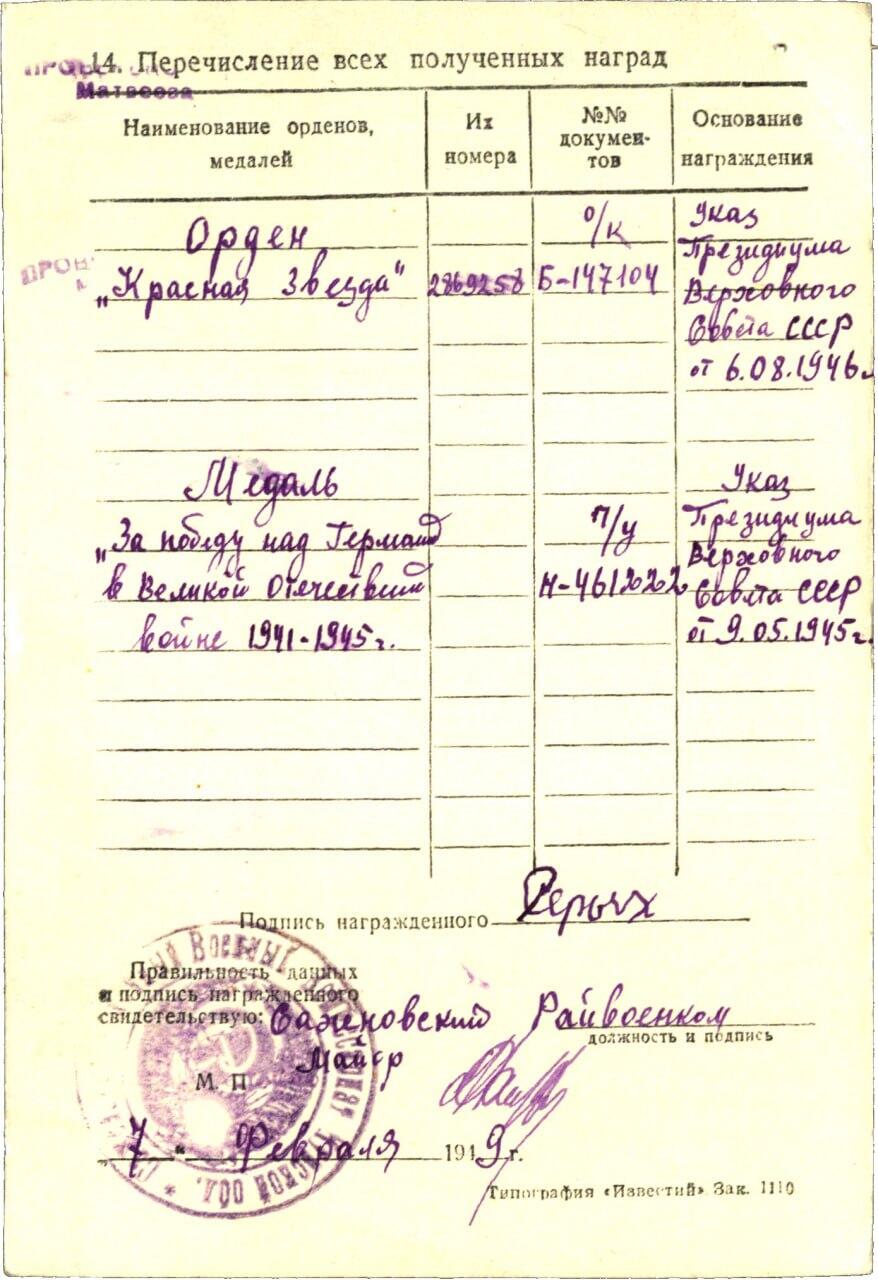 14. Перечисление всех полученных наград
Матвеева
Наименование орденов,
медалей
Их
номера
№№
докумен-
тов
Основание
награждения
Орден
„Красная Звезда“
2869258
о/к
Б-147104
Указ
Президиума
Верховного
Совета СССР
от 6.08.1946г.
Медаль
„За победу над Германией
в Великой Отечественной
войне 1941-1945г.
п/у
Н-4612022
Указ
Президиума
Верховного
Совета СССР
от 9.05.1945г.
Подпись награжденного
Правильность данных
и подпись награжденного
свидетельствую: Райвоенком
должность и подпись
Майор
М. П
„7“ Февраля 1949г.
Типография «Известий» Зак. 1110